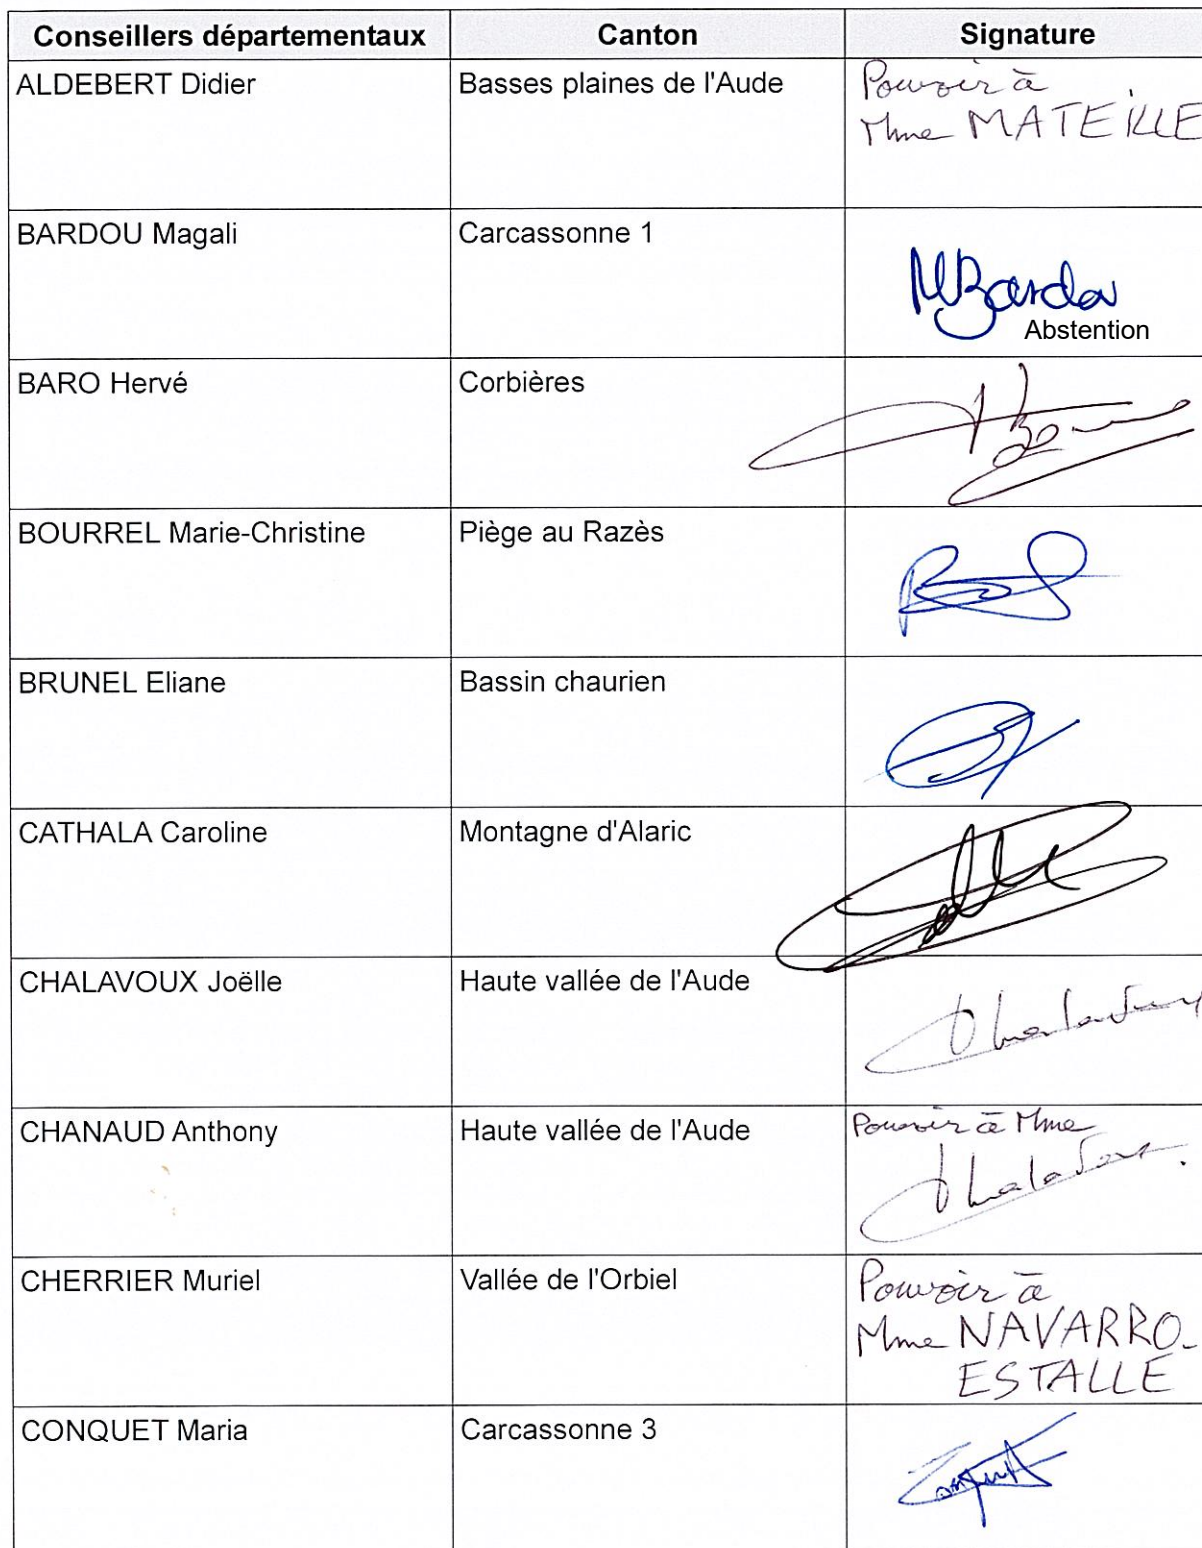 Conseillers départementaux Canton Signature
ALDEBERT Didier Basses plaines de l'Aude Pouvoir à
Mme MATEILLE
BARDOU Magali Carcassonne 1
MBardou
Abstention
BARO Hervé Corbières
BOURREL Marie-Christine Piège au Razès
BRUNEL Eliane Bassin chaurien
CATHALA Caroline Montagne d'Alaric
CHALAVOUX Joëlle Haute vallée de l'Aude
Chalavoux
CHANAUD Anthony Haute vallée de l'Aude Pouvoir à Mme
Chalavoux
CHERRIER Muriel Vallée de l'Orbiel Pouvoir à
Mme NAVARRO-
ESTALLE
CONQUET Maria Carcassonne 3
Conquet